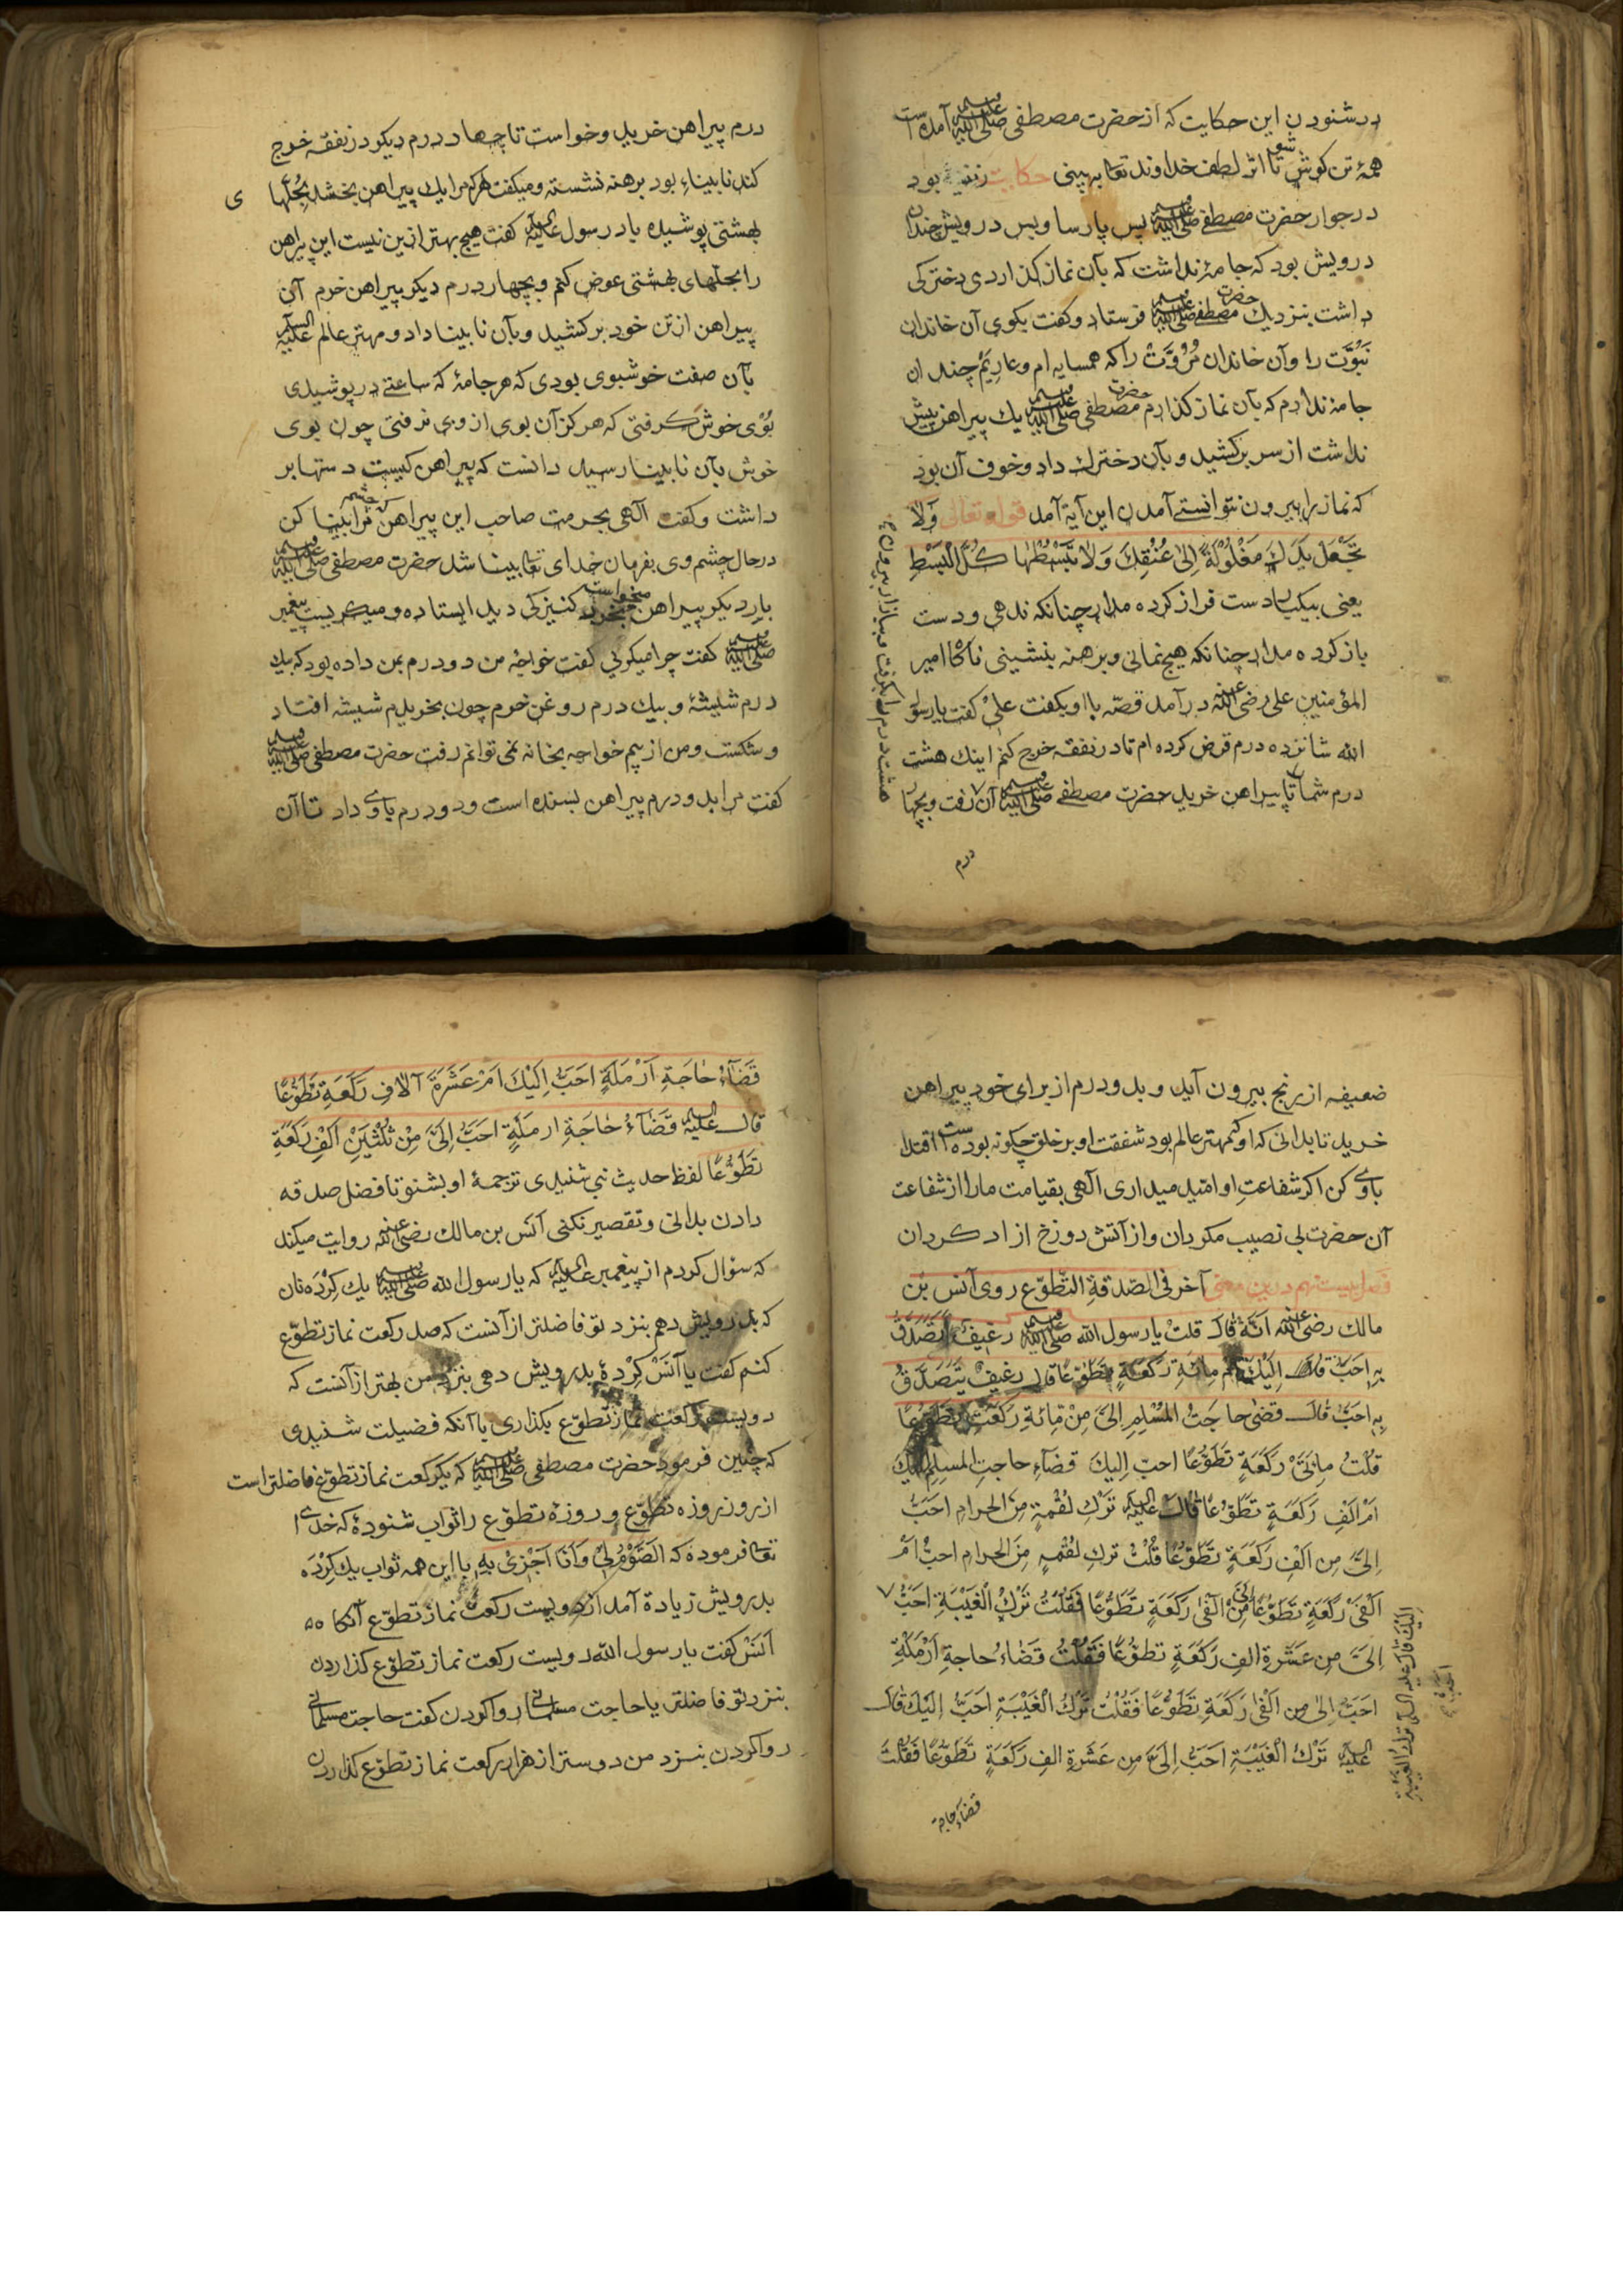 در شنودن این حکایت که از حضرت مصطفی صلی الله علیه وسلم آمده است
همه تن کوش شو تا اثر لطف خداوند تعا به بینی حکایت زنی بود
در جوار حضرت مصطفے صلی الله علیه وسلم پس پارسا و پس درویش چندان
درویش بود که جامهٔ نداشت که بآن نماز کذاردی دخترکی
داشت بنزدیك حضرت مصطفے صلی الله علیه وسلم فرستاد و کفت بکوی آن خاندان
نبُوَّت را و آن خاندان مُرُوَّتْ را که همسایه ام و عاریَمْ چندان
جامه ندارم که بآن نماز کذارم حضرت مصطفی صلی الله علیه وسلم یك پیراهن بیش
نداشت از سر برکشید و بآن دخترك داد و خوف آن بود
که نماز را بیرون نتوانستے آمدن این آیة آمد قوله تعالی وَلا
تَجْعَلْ یَدَكَ مَغْلُوْلَةً اِلیٰ عُنُقِكَ وَلاٰ تَبْسُطْهٰا كُلَّ الْبَسْطِ
یعنی بیکبار دست فراز کرده مدار چنانکه ندهی و دست
باز کرده مدار چنانکه هیچ نمانی و برهنه بنشینی ناکاٰ امیر
المؤمنین علی رضی الله عنه در آمد قصّه با او بکفت علیْ کفت یا رسول
الله شانزده درم قرض کرده ام تا در نفقه خرج کنم اینك هشت
درم شما را تا پیراهن خرید حضرت مصطفے صلی الله علیه وسلم آن رفت و بچهار
هشت درم را بکرفت و ببازار بیرون
درم
درم پیراهن خرید و خواست تا چهار درم دیکر در نفقه خرج
کند نابیناءِ بود برهنه نشسته و میکفت هر که مرا یك پیراهن بخشد بحُلّها
ی
بهشتی پوشیده باد رسول علیه السلام کفت هیچ بهتر ازین نیست این پیراهن
را بحلّهای بهشتی عوض کنم و بچهار درم دیکر پیراهن خرم آن
پیراهن از تن خود بر کشید و بآن نابینا داد و مهتر عالم علیه السلام
بآن صفت خوشبوی بودی که هر جامهٔ که ساعتے در پوشیدی
بُوْی خوش کرفتی که هرکز آن بوی از وی نرفتی چون بوی
خوش بآن نابینا رسید دانست که پیراهن کیست دستها بر
داشت و کفت آلهی بحرمت صاحب این پیراهن که چشم مرا بینا کن
در حال چشم وی بفرمان خدای تعا بینا شد حضرت مصطفی صلی الله علیه وسلم
بار دیکر پیراهن میخواست بخرد کنیزکی دید ایستاده و میکریست پیغمبر
صلی الله علیه وسلم کفت چرا میکرئی کفت خواجهٔ من دو درم بمن داده بود که بیك
درم شیشهٔ و بیك درم روغن خرم چون بخریدم شیشه افتاد
و شکست و من از بیم خواجه بخانه نمی توانم رفت حضرت مصطفی صلی الله علیه وسلم
کفت مرا بدو درم پیراهن بسنده است و دو درم باوے داد تا آن
ضعیفه از رنج بیرون آید و بدو درم از برای خود پیراهن
خرید تا بدانی که او که مهتر عالم بود شفقت او بر خلق چکونه بوده است اقتدا
باوے کن اکر شفاعتِ او امّید میداری آلهی بقیامت مارا از شفاعت
آن حضرت بی نصیب مکردان و از آتش دوزخ ازاد کردان
فصل بیست نهم درین معنی آخر فی الصّدقةِ التّطوّع روی آنس بْن
مالك رضی الله عنه انّهُ قالَ قلت یا رسول الله صلی الله علیه وسلم رغیفٌ اَتَصَدَّقُ
بِهِ احَبُّ اِلَیْكَ اَمْ مِائَةِ رَکَعَةٍ تَطَوُّعًا قال رغیفٌ یَتَصَدَّقُ
بِهِ احَبُّ قالَ قضیٰ حا جَتُ الْمُسْلِمِ اِلیَّ مِنْ مِائَةِ رَکَعَتیِ تَطَوُّعًا
قُلْتُ مِائَتَیْ رَکَعَةٍ تَطَوُّعًا احب اِلیكَ قضآءِ حاجتِ المسلِمِ اِلَیْكَ
اَمْ اَلفِ رَکَعَةٍ تَطَوُّعًا قالَ علیه السلام تَرْكِ لُقْمةٍ مِنَ الحرامِ احَبُّ
اِلیَّ مِن اَلْفِ رَکَعَةٍ تَطَوُّعًا قُلْتُ تركِ لُقْمةٍ مِنَ الحرامِ احبُّ اَمْ
اَلْفَیْ رَکَعَةٍ تَطَوُّعًا مِنْ اَلْفَیْ رَکَعَةٍ تَطَوُّعًا فَقُلْتُ تَرْكِ الْغَیْبَةِ احَبُّ
اِلیَّ مِن عَشَرةِ الفِ رَکَعَةٍ تطوُّعًا فَقُلْتُ قَضٰاءُ حاجةِ اَرْمَلَةِ
احَبُّ اِلیٰ مِن اَلْفَیْ رَکَعَةِ تَطَوُّعًا فَقُلْتُ تَرْكُ الْغَیْبَةِ احَبُّ اِلَیْكَ قالَ
علیه السلام تَرْكُ الْغَیْبَةِ اَحَبُّ اِلیَّ مِن عَشَرةِ الفِ رَکَعَةٍ تَطَوُّعًا فَقُلْتُ
قضآءُ حاجة
قَضَآءُ حٰاجَةِ اَرْمَلَةٍ احَبُّ اِلَیْكَ اَمْ عَشَرَةَ آلافِ رَکَعَةِ تَطَوُّعًا
قالَ علیه السلام قَضٰآءُ حٰاجَةِ ارمَلَةٍ احَبُّ اِلیَّ مِنْ ثَلٰثِیْنَ اَلْفِ رَکَعَةِ
تَطَوُّعًا لفظ حدیث نبی شنیدی ترجمهٔ او بشنو تا فضل صدقه
دادن بدانی و تقصیر نکنی آنَس بن مالك رضی الله عنه روایت میکند
که سؤال کردم از پیغمبر علیه السلام که یا رسول الله صلی الله علیه وسلم یك کِرْدَه نان
که بدرویش دهم بنزد تو فاضلتر از آنست که صد رکعت نماز تطوّع
کنم کفت یا آنَسْ کِرْدهٔ بدرویش دهی بنزد من بهتر از آنست که
دویست رکعت نماز تطوّع بکذاری با آنکه فضیلت شنیدی
که چنین فرمود حضرت مصطفی صلی الله علیه وسلم که یکرکعت نماز تطوّع فاضلتر است
از روز روزه تطوّع و روزهٔ تطوّع را ثواب شنودهٔ که خدای
تعا فرموده که الصَّوْمُ لِیْ وَاَنَا اَجْزِیْ بِهِ با این همه ثواب یك کِرْدَه
بدرویش زیادة آمد از دویست رکعت نماز تطوّع آنکاه
اَنَسْ کفت یا رسول الله دویست رکعت نماز تطوّع کذاردن
بنزد تو فاضلتر یا حاجت مسلمانی روا کردن کفت حاجت مسلمانی
روا کردن بنزد من دوستر از هزار رکعت نماز تطوّع کذاردن